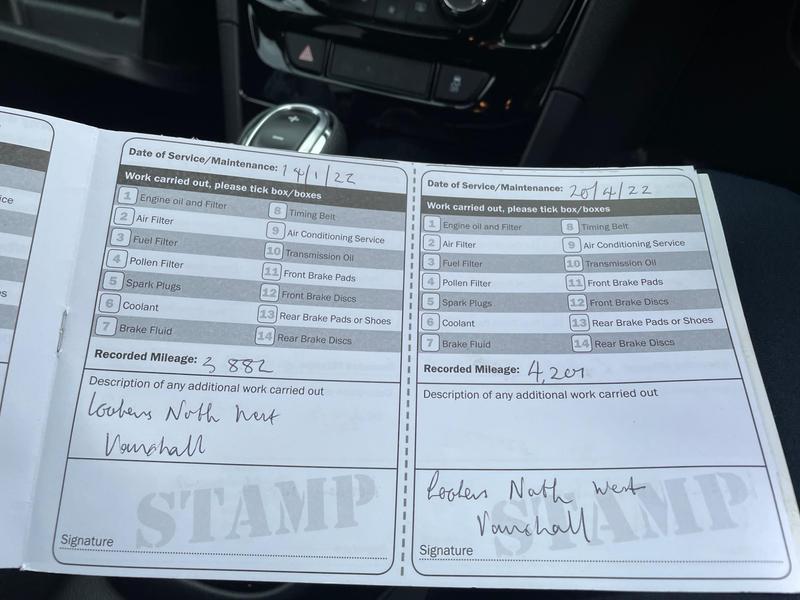 Date of Service/Maintenance: 14/1/22
Work carried out, please tick box/boxes
1 Engine oil and Filter 8 Timing Belt
2 Air Filter 9 Air Conditioning Service
3 Fuel Filter 10 Transmission Oil
4 Pollen Filter 11 Front Brake Pads
5 Spark Plugs 12 Front Brake Discs
6 Coolant 13 Rear Brake Pads or Shoes
7 Brake Fluid 14 Rear Brake Discs
Recorded Mileage: 3 882
Description of any additional work carried out
Lookers North West
Vauxhall
STAMP
Signature
Date of Service/Maintenance: 20/4/22
Work carried out, please tick box/boxes
1 Engine oil and Filter 8 Timing Belt
2 Air Filter 9 Air Conditioning Service
3 Fuel Filter 10 Transmission Oil
4 Pollen Filter 11 Front Brake Pads
5 Spark Plugs 12 Front Brake Discs
6 Coolant 13 Rear Brake Pads or Shoes
7 Brake Fluid 14 Rear Brake Discs
Recorded Mileage: 4,201
Description of any additional work carried out
Lookers North West
Vauxhall
STAMP
Signature